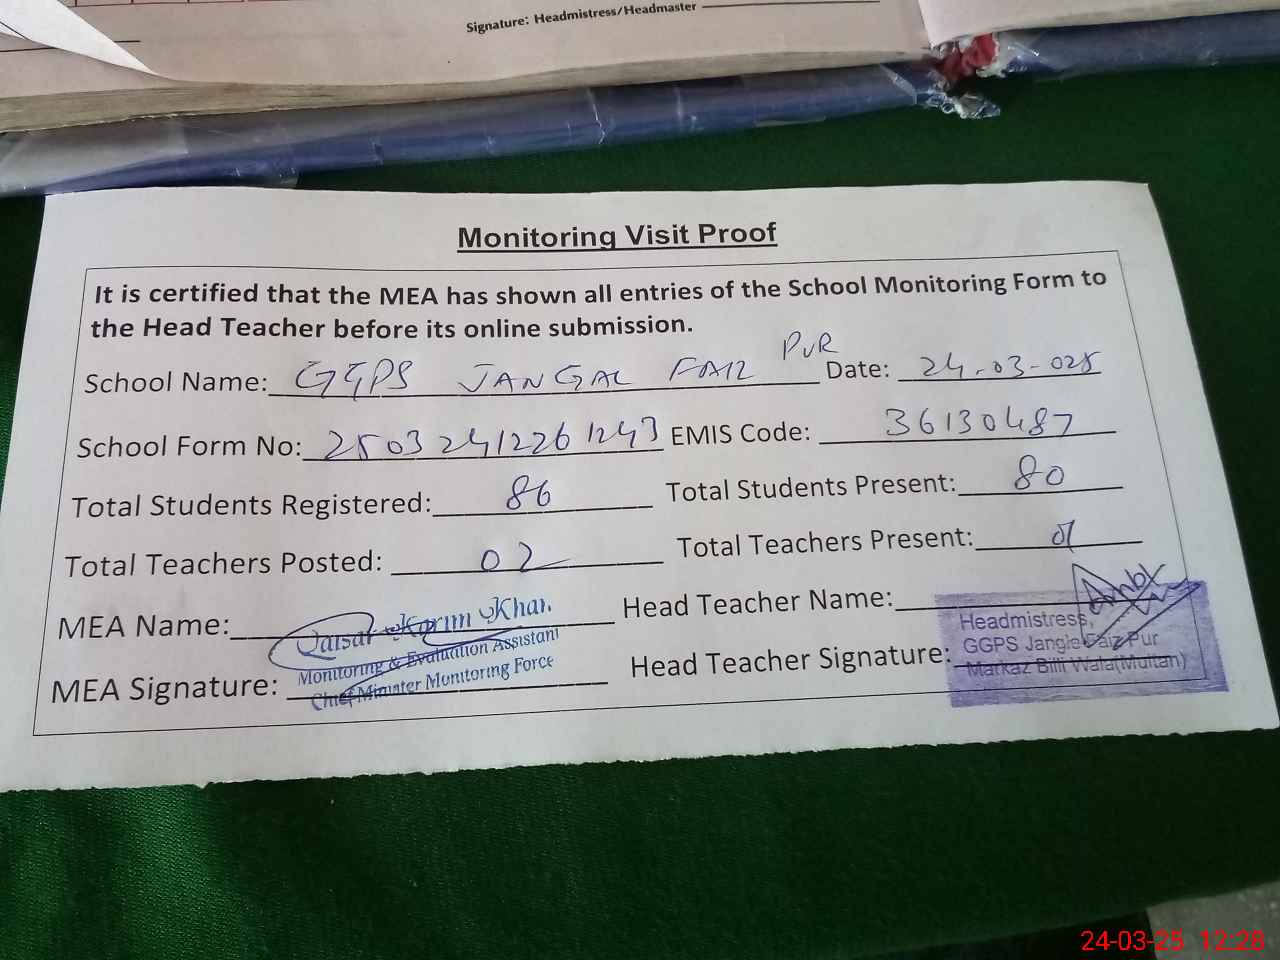 Signature: Headmistress/Headmaster
Monitoring Visit Proof
It is certified that the MEA has shown all entries of the School Monitoring Form to
the Head Teacher before its online submission.
School Name: GGPS JANGAL FAIZ PUR Date: 24-03-025
School Form No: 2503241226 1243 EMIS Code: 36130487
Total Students Registered: 86 Total Students Present: 80
Total Teachers Posted: 02 Total Teachers Present: 01
MEA Name: Qaisar Karim Khan Head Teacher Name:
Monitoring & Evaluation Assistant
Chief Minister Monitoring Force
MEA Signature: Head Teacher Signature:
Headmistress,
GGPS Jangle Faiz Pur
Markaz Billi Wala(Multan)
24-03-25 12:28